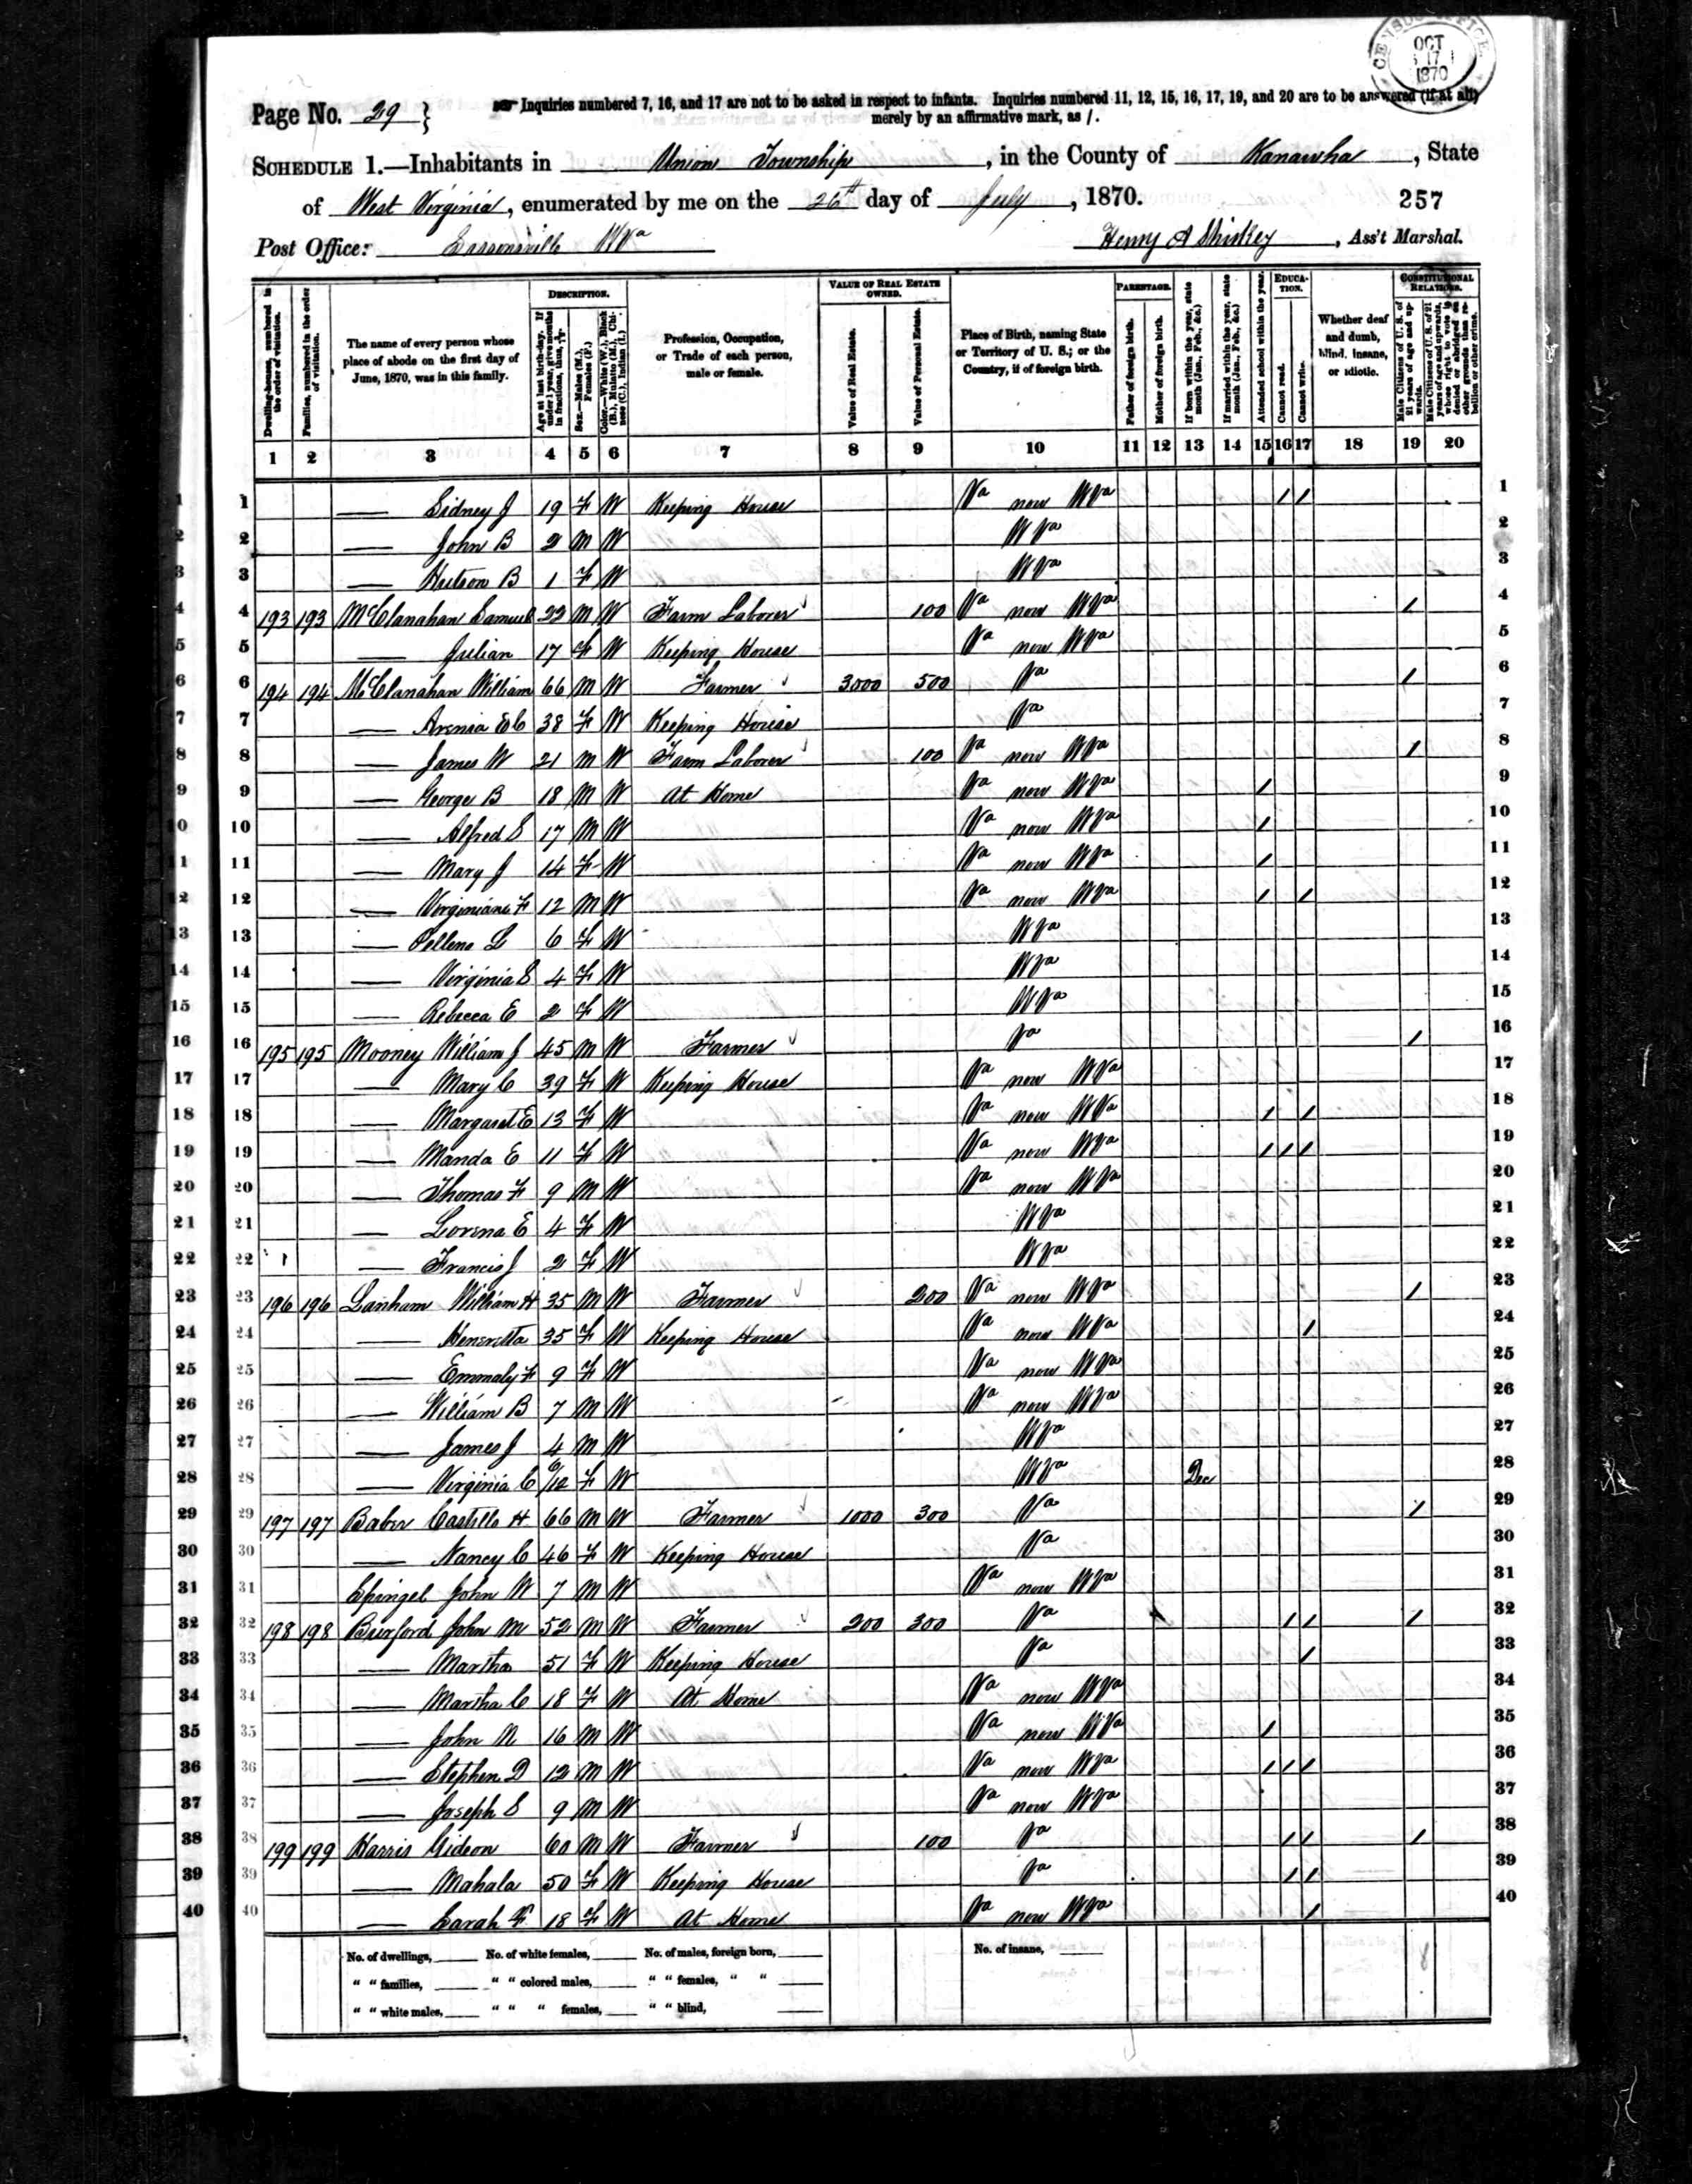 CENSUS OFFICE
OCT
17
1870
Page No. 29 }
Inquiries numbered 7, 16, and 17 are not to be asked in respect to infants. Inquiries numbered 11, 12, 15, 16, 17, 19, and 20 are to be answered (if at all)
merely by an affirmative mark, as /.
SCHEDULE 1.—Inhabitants in Union Township, in the County of Kanawha, State
of West Virginia, enumerated by me on the 26th day of July, 1870.
257
Post Office: W Va
Henry A Shirkey, Ass't Marshal.
Dwelling-houses, numbered in the order of visitation.
Families, numbered in the order of visitation.
The name of every person whose place of abode on the first day of June, 1870, was in this family.
DESCRIPTION.
Age at last birth-day. If under 1 year, give months in fractions, thus, 3/12.
Sex.—Males (M.), Females (F.)
Color.—White (W.), Black (B.), Mulatto (M.), Chinese (C.), Indian (I.)
Profession, Occupation, or Trade of each person, male or female.
VALUE OF REAL ESTATE OWNED.
Value of Real Estate.
Value of Personal Estate.
Place of Birth, naming State or Territory of U. S.; or the Country, if of foreign birth.
PARENTAGE.
Father of foreign birth.
Mother of foreign birth.
If born within the year, state month (Jan., Feb., &c.)
If married within the year, state month (Jan., Feb., &c.)
Attended school within the year.
EDUCATION.
Cannot read.
Cannot write.
Whether deaf and dumb, blind, insane, or idiotic.
CONSTITUTIONAL RELATIONS.
Male Citizens of U. S. of 21 years of age and upwards.
Male Citizens of U. S. of 21 years of age and upwards, whose right to vote is denied or abridged on other grounds than rebellion or other crime.
1 2 3 4 5 6 7 8 9 10 11 12 13 14 15 16 17 18 19 20
1 — Sidney J 19 F W Keeping House Va now W Va / / 1
2 — John B 2 M W W Va 2
3 — Hutson B 1 F W W Va 3
4 193 193 McClanahan Samuel 22 M W Farm Laborer 100 Va now W Va / 4
5 — Julian 17 F W Keeping House Va now W Va 5
6 194 194 McClanahan William 66 M W Farmer 3000 500 Va / 6
7 — 38 F W Keeping House Va 7
8 — James W 21 M W Farm Laborer 100 Va now W Va / 8
9 — George B 18 M W At Home Va now W Va / 9
10 — Alfred S 17 M W Va now W Va / 10
11 — Mary J 14 F W Va now W Va / 11
12 — F 12 M W Va now W Va / / 12
13 — 6 F W W Va 13
14 — Virginia S 4 F W W Va 14
15 — Rebecca E 2 F W W Va 15
16 195 195 Mooney William J 45 M W Farmer Va / 16
17 — Mary C 39 F W Keeping House Va now W Va 17
18 — Margaret E 13 F W Va now W Va / / 18
19 — Manda E 11 F W Va now W Va / / / 19
20 — Thomas F 9 M W Va now W Va 20
21 — Lorena E 4 F W W Va 21
22 — Francis J 2 F W W Va 22
23 196 196 Lanham William H 35 M W Farmer 200 Va now W Va / 23
24 — Henrietta 35 F W Keeping House Va now W Va / 24
25 — Emmaly F 9 F W Va now W Va 25
26 — William B 7 M W Va now W Va 26
27 — James J 4 M W W Va 27
28 — Virginia C 6/12 F W W Va Dec 28
29 197 197 Baber Castillo H 66 M W Farmer 1000 300 Va / 29
30 — Nancy C 46 F W Keeping House Va 30
31 John W 7 M W Va now W Va 31
32 198 198 Burford John M 52 M W Farmer 200 300 Va / / / 32
33 — Martha 51 F W Keeping House Va / 33
34 — Martha C 18 F W At Home Va now W Va 34
35 — John N 16 M W Va now W Va / 35
36 — Stephen D 12 M W Va now W Va / / / 36
37 — Joseph S 9 M W Va now W Va 37
38 199 199 Harris Gideon 60 M W Farmer 100 Va / / / 38
39 — Mahala 50 F W Keeping House Va / / 39
40 — Sarah F 18 F W At Home Va now W Va / 40
No. of dwellings, No. of white females, No. of males, foreign born, No. of insane,
" " families, " " colored males, " " females, " "
" " white males, " " " females, " " blind,
8